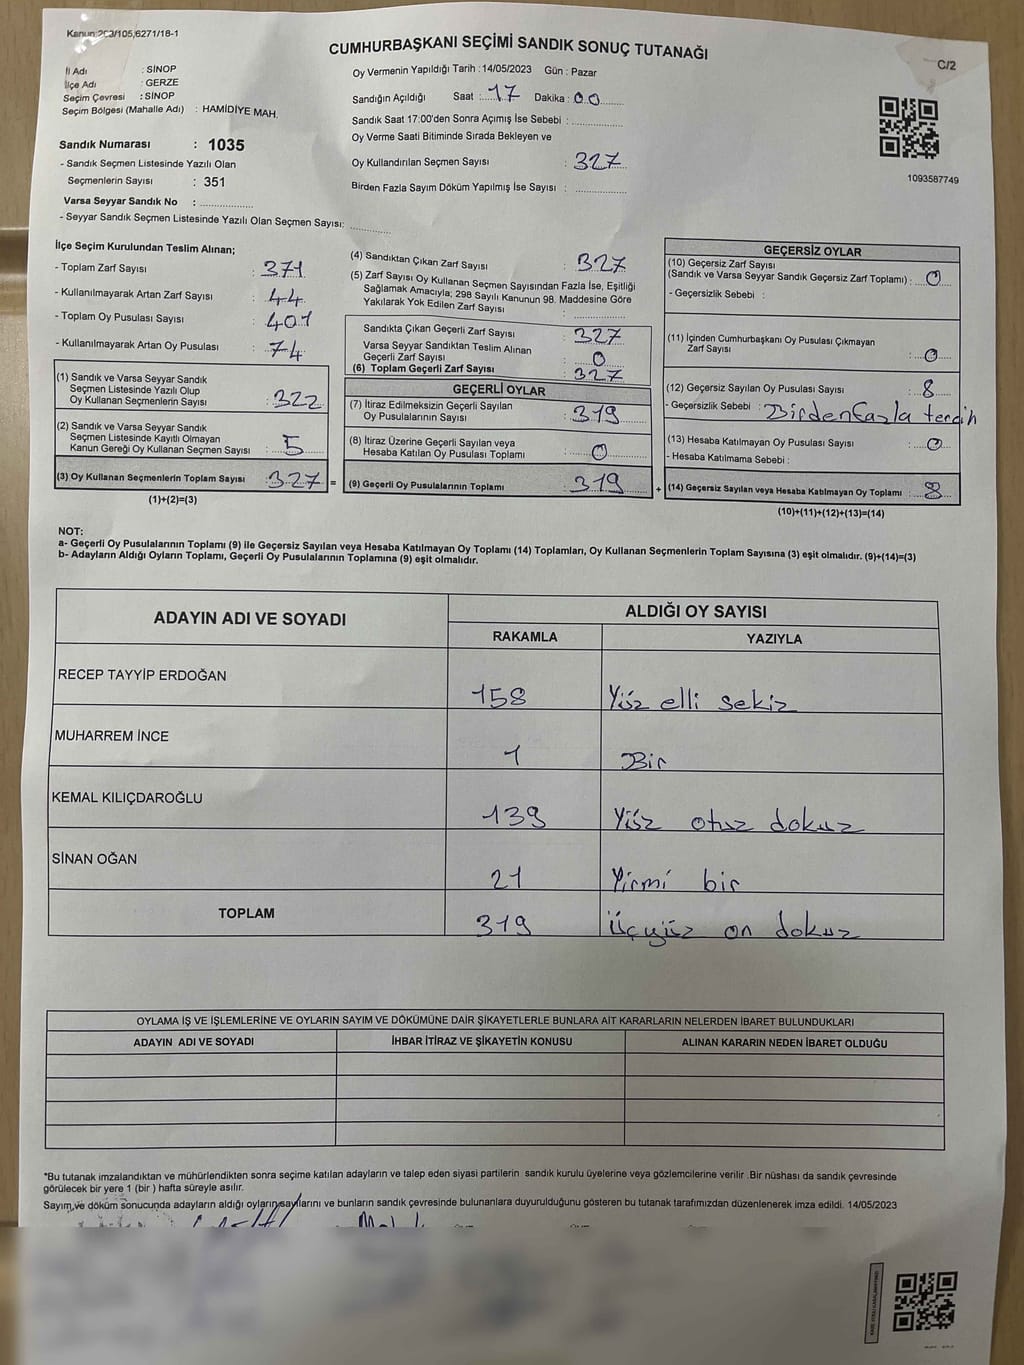 Kanun:293/105,6271/18-1
CUMHURBAŞKANI SEÇİMİ SANDIK SONUÇ TUTANAĞI
C/2
İl Adı : SİNOP
İlçe Adı : GERZE
Seçim Çevresi : SİNOP
Seçim Bölgesi (Mahalle Adı) : HAMİDİYE MAH.
Sandık Numarası : 1035
- Sandık Seçmen Listesinde Yazılı Olan
Seçmenlerin Sayısı : 351
Varsa Seyyar Sandık No :
- Seyyar Sandık Seçmen Listesinde Yazılı Olan Seçmen Sayısı:
Oy Vermenin Yapıldığı Tarih :14/05/2023 Gün : Pazar
Sandığın Açıldığı Saat : 17 Dakika : 00
Sandık Saat 17:00'den Sonra Açımış İse Sebebi :
Oy Verme Saati Bitiminde Sırada Bekleyen ve
Oy Kullandırılan Seçmen Sayısı : 327
Birden Fazla Sayım Döküm Yapılmış İse Sayısı :
1093587749
İlçe Seçim Kurulundan Teslim Alınan;
- Toplam Zarf Sayısı : 371
- Kullanılmayarak Artan Zarf Sayısı : 44
- Toplam Oy Pusulası Sayısı : 401
- Kullanılmayarak Artan Oy Pusulası : 74
(1) Sandık ve Varsa Seyyar Sandık
Seçmen Listesinde Yazılı Olup
Oy Kullanan Seçmenlerin Sayısı : 322
(2) Sandık ve Varsa Seyyar Sandık
Seçmen Listesinde Kayıtlı Olmayan
Kanun Gereği Oy Kullanan Seçmen Sayısı : 5
(3) Oy Kullanan Seçmenlerin Toplam Sayısı : 327 =
(1)+(2)=(3)
(4) Sandıktan Çıkan Zarf Sayısı : 327
(5) Zarf Sayısı Oy Kullanan Seçmen Sayısından Fazla İse, Eşitliği
Sağlamak Amacıyla; 298 Sayılı Kanunun 98. Maddesine Göre
Yakılarak Yok Edilen Zarf Sayısı :
Sandıkta Çıkan Geçerli Zarf Sayısı : 327
Varsa Seyyar Sandıktan Teslim Alınan
Geçerli Zarf Sayısı : 0
(6) Toplam Geçerli Zarf Sayısı : 327
GEÇERLİ OYLAR
(7) İtiraz Edilmeksizin Geçerli Sayılan
Oy Pusulalarının Sayısı : 319
(8) İtiraz Üzerine Geçerli Sayılan veya
Hesaba Katılan Oy Pusulası Toplamı : 0
(9) Geçerli Oy Pusulalarının Toplamı : 319 +
GEÇERSİZ OYLAR
(10) Geçersiz Zarf Sayısı
(Sandık ve Varsa Seyyar Sandık Geçersiz Zarf Toplamı) : 0
- Geçersizlik Sebebi :
(11) İçinden Cumhurbaşkanı Oy Pusulası Çıkmayan
Zarf Sayısı : 0
(12) Geçersiz Sayılan Oy Pusulası Sayısı : 8
- Geçersizlik Sebebi : Birden fazla tercih
(13) Hesaba Katılmayan Oy Pusulası Sayısı : 0
- Hesaba Katılmama Sebebi :
(14) Geçersiz Sayılan veya Hesaba Katılmayan Oy Toplamı : 8
(10)+(11)+(12)+(13)=(14)
NOT:
a- Geçerli Oy Pusulalarının Toplamı (9) ile Geçersiz Sayılan veya Hesaba Katılmayan Oy Toplamı (14) Toplamları, Oy Kullanan Seçmenlerin Toplam Sayısına (3) eşit olmalıdır. (9)+(14)=(3)
b- Adayların Aldığı Oyların Toplamı, Geçerli Oy Pusulalarının Toplamına (9) eşit olmalıdır.
ADAYIN ADI VE SOYADI
ALDIĞI OY SAYISI
RAKAMLA YAZIYLA
RECEP TAYYİP ERDOĞAN 158 Yüz elli sekiz
MUHARREM İNCE 1 Bir
KEMAL KILIÇDAROĞLU 139 Yüz otuz dokuz
SİNAN OĞAN 21 Yirmi bir
TOPLAM 319 Üçyüz on dokuz
OYLAMA İŞ VE İŞLEMLERİNE VE OYLARIN SAYIM VE DÖKÜMÜNE DAİR ŞİKAYETLERLE BUNLARA AİT KARARLARIN NELERDEN İBARET BULUNDUKLARI
ADAYIN ADI VE SOYADI İHBAR İTİRAZ VE ŞİKAYETİN KONUSU ALINAN KARARIN NEDEN İBARET OLDUĞU
*Bu tutanak imzalandıktan ve mühürlendikten sonra seçime katılan adayların ve talep eden siyasi partilerin sandık kurulu üyelerine veya gözlemcilerine verilir .Bir nüshası da sandık çevresinde
görülecek bir yere 1 (bir ) hafta süreyle asılır.
Sayım,ve döküm sonucunda adayların aldığı oyların sayılarını ve bunların sandık çevresinde bulunanlara duyurulduğunu gösteren bu tutanak tarafımızdan düzenlenerek imza edildi. 14/05/2023